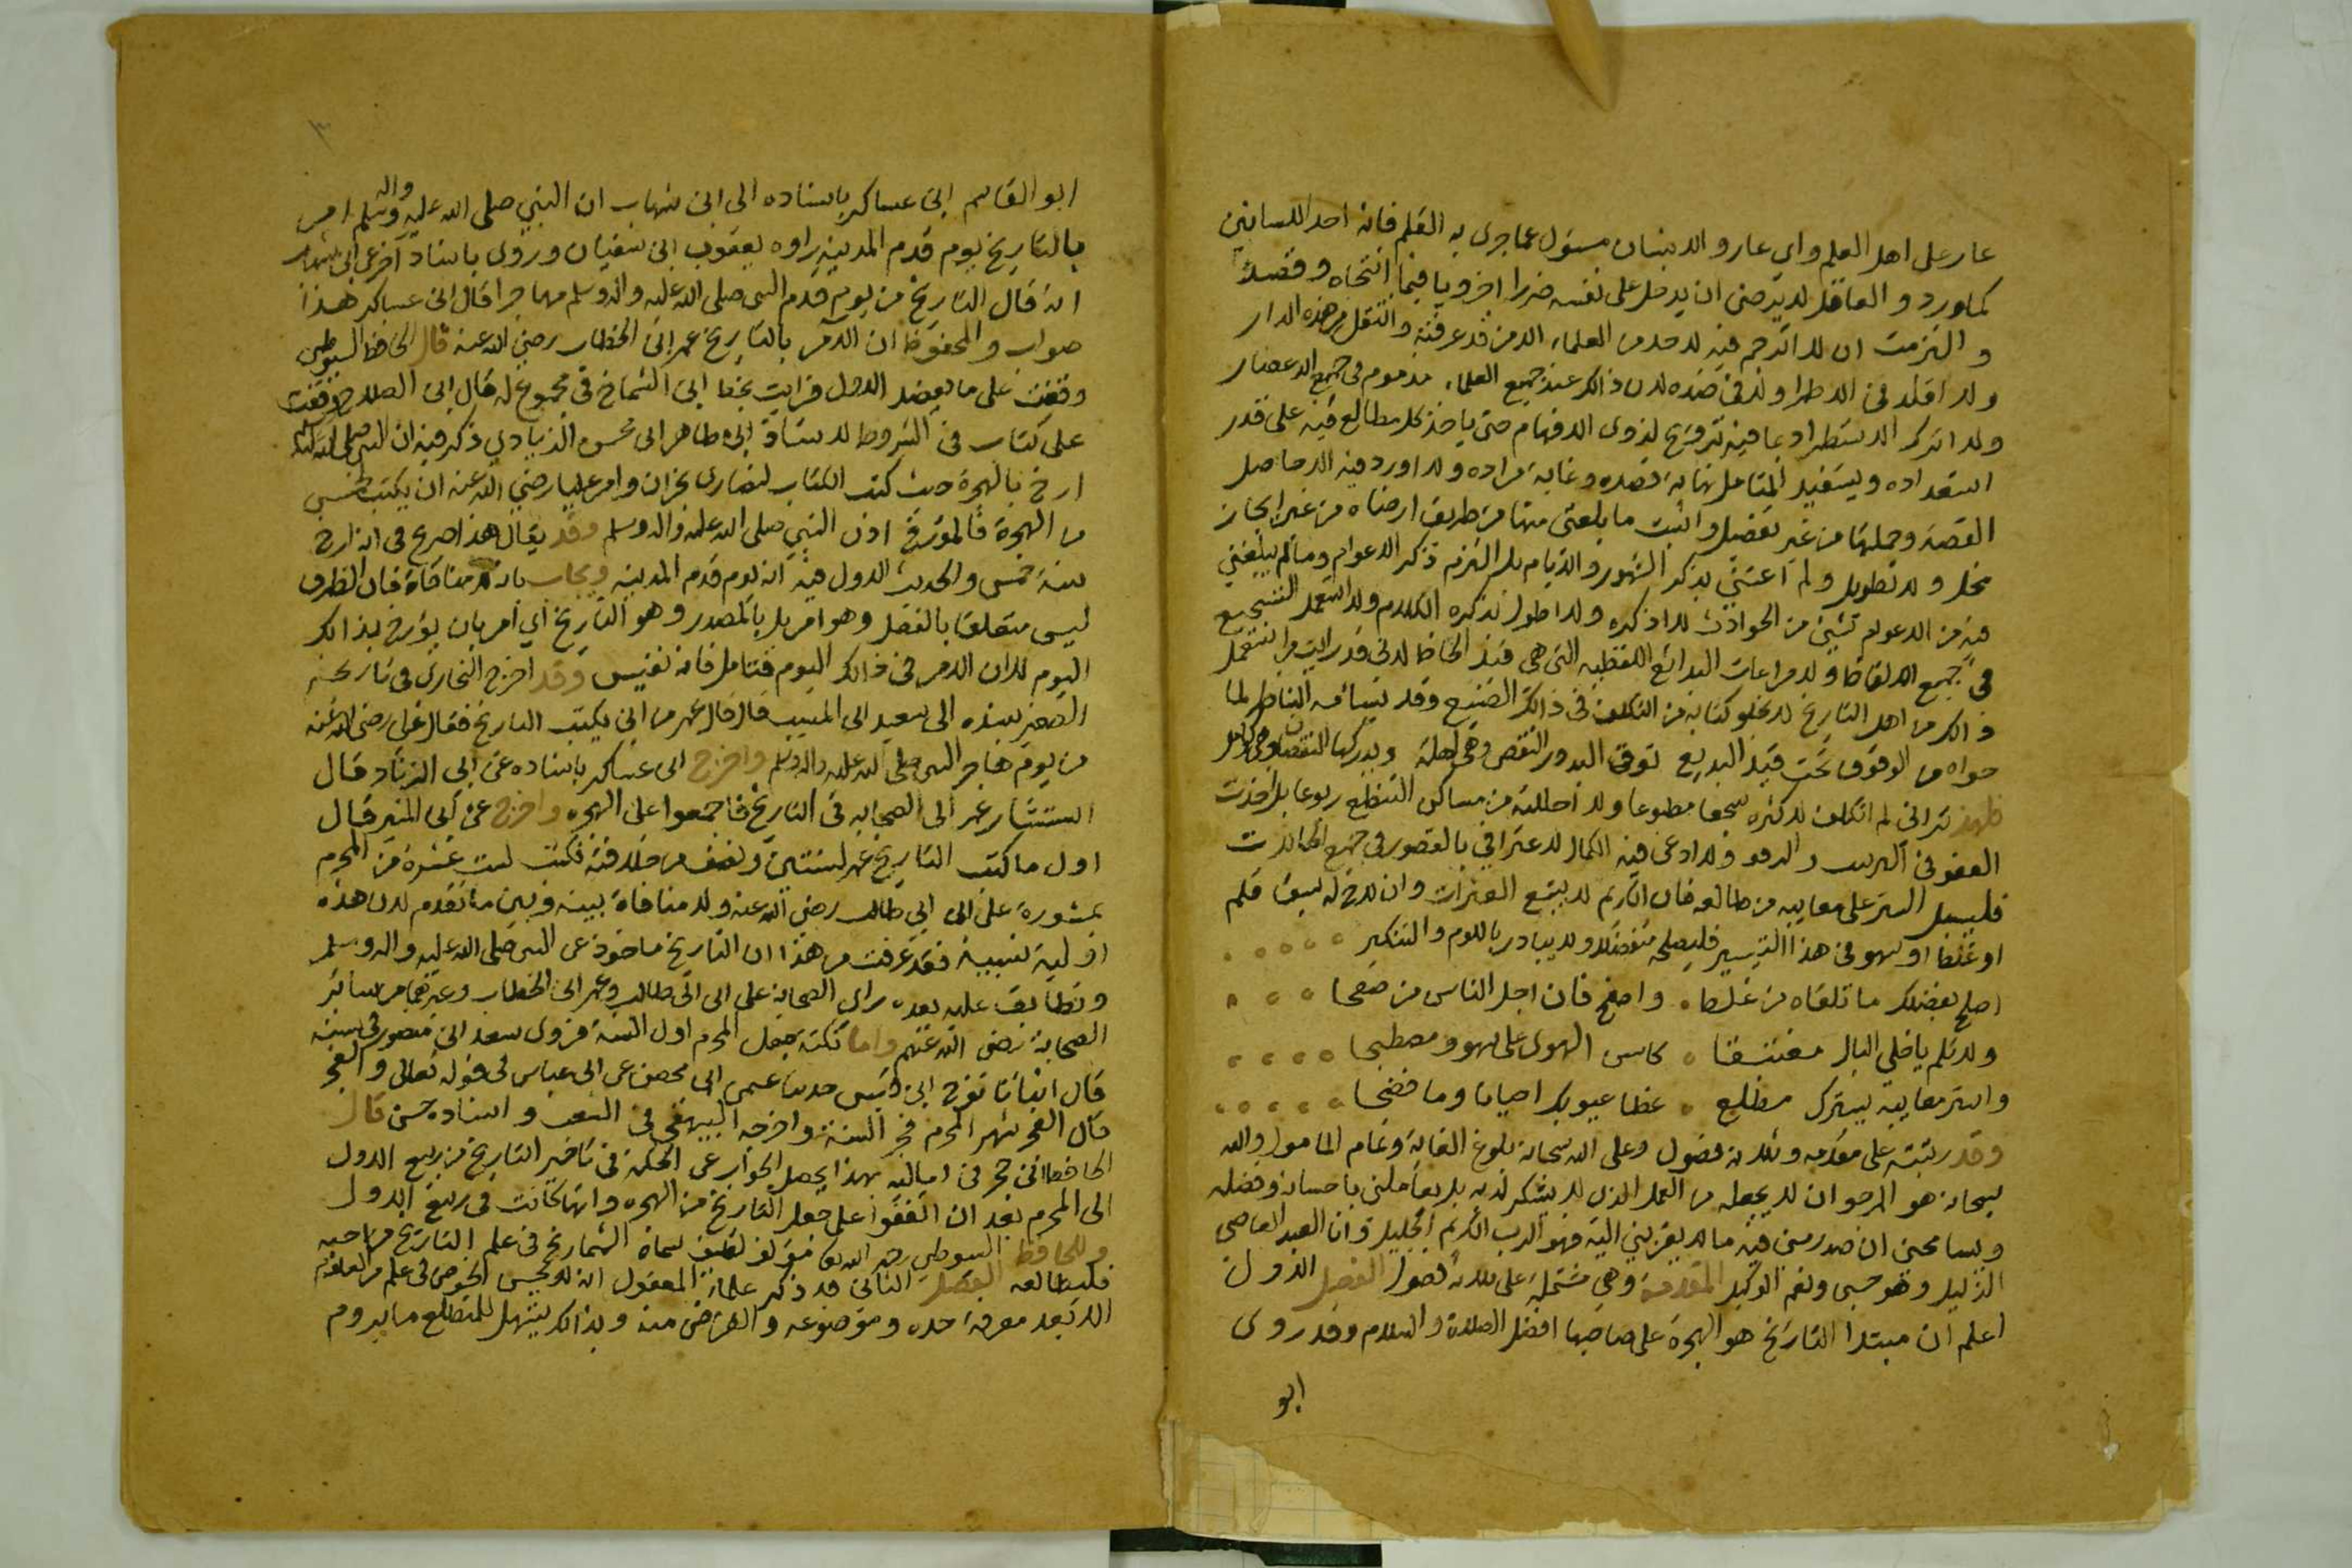 عار على اهل العلم واي عار والانسان مسؤل عما جرى به القلم فانه احد اللسانين
كما ورد والعاقل لا يرضى ان يدخل على نفسه ضررا اخرويا فيما انتحاه وقصده
والتزمت ان لا اترجم فيه لاحد من العلماء الا من قد عرفته وانتقل من هذه الدار
ولا اقلد في الاطراء ولا في ضده لان ذالك عند جميع العلماء مذموم في جميع الاعصار
ولا اترك الاستطراد بما فيه ترويح لذوى الافهام حتى ياخذ كل مطالع فيه على قدر
استعداده ويستفيد المتامل نهاية قصده وغاية مراده ولا اورد فيه الا حاصل
القصة وجملتها من غير تفصيل واثبت ما بلغني منها من طريق ارضاه من غير ايجاز
مخل ولا تطويل ولم اعتني بذكر الشهور والايام بل التزم ذكر الاعوام ومالم يبلغني
فيه من الاعوام شيئ من الحوادث لا اذكره ولا اطول بذكره الكلام ولا استعمل التسجيع
في جميع الالفاظ ولا مراعات البدائع اللفظيه التي هي قيد الحاظ لاني قد رايت من استعمل
ذالك من اهل التاريخ لا يخلو كتابه من التكلف في ذالك الصنيع وقد يسائمه الناظر لما
حواه من الوقوف تحت قيد البديع توقى البدور النقص وهي اهلة ويدركها النقصان وهي كوامل
فلهذ تراني لم اتكلف لاكثره سجعا مطبوعا ولا احللته من مساكن التنطع ربوعا بل اخذت
العفو في الترتيب والرقم ولا ادعى فيه الكمال لاعترافي بالقصور في جميع الحالات
فليسبل الستر على معايبه من طالعه فان الكريم لا يتبع العثرات وان لاح له سبق قلم
او غلط او سهو في هذا التيسير فليصلحه متفضلا ولا يبادر باللوم والتنكير
اصلح بفضلك ما تلقاه من غلط واصفح فان اجل الناس من صفحا
ولا تلم يا خلي البال مغتبقا كاس الهوى على سهو ومصطبحا
واستر معايبه يسترك مطلع غطا عيوبك احيانا وما فضحا
وقد رتبته على مقدمه وثلاثة فصول وعلى الله سبحانه بلوغ الغاية وتمام المامول والله
سبحانه هو المرجو ان لا يجعله من العمل الذي لا يشكر لديه بل يعاملني باحسانه وفضله
ويسامحني ان صدر مني فيه ما لا يقربني اليه فهو الرب الكريم الجليل وانا العبد العاصي
الذليل وهو حسبي ونعم الوكيل المقدمة وهي مشتملة على ثلاثة فصول الفصل الاول
اعلم ان مبتدا التاريخ هو الهجرة على صاحبها افضل الصلاة والسلام وقد روى
ابو
ابو القاسم ابن عساكر باسناده الى ابن شهاب ان النبي صلى الله عليه واله وسلم امر
بالتاريخ يوم قدم المدينة رواه يعقوب ابن سفيان وروى باسناد آخر عن ابن شهاب
انه قال التاريخ من يوم قدم النبي صلى الله عليه واله وسلم مهاجرا قال ابن عساكر هذا
صواب والمحفوظ ان الآمر بالتاريخ عمر ابن الخطاب رضي الله عنه قال الحافظ السيوطي
وقفت على ما يعضد الاول فرايت بخط ابن الشماخ في مجموع له قال ابن الصلاح وقفت
على كتاب في الشروط للاستاذ ابي طاهر ابن محمش الزيادي ذكر فيه ان النبي صلى الله عليه
ارخ بالهجرة حيث كتب الكتاب لنصارى نجران وامر عليا رضي الله عنه ان يكتب لخمس
من الهجرة فالمؤرخ اذن النبي صلى الله عليه واله وسلم وقد يقال هذا صريح في انه ارخ
سنة خمس والحديث الاول فيه انه يوم قدم المدينه ويجاب بانه لا منافاة فان الظرف
ليس متعلقا بالفعل وهو امر بل بالمصدر وهو التاريخ اي امر بان يؤرخ بذالك
اليوم لا ان الامر في ذالك اليوم فتامل فانه نفيس وقد اخرج البخاري في تاريخه
الصغير بسنده الى سعيد ابن المسيب قال قال عمر متى يكتب التاريخ فقال علي رضي الله عنه
من يوم هاجر النبي صلى الله عليه واله وسلم واخرج ابن عساكر باسناده عن ابي الزناد قال
استشار عمر الصحابه في التاريخ فاجمعوا على الهجره واخرج عن ابن المسيب قال
اول ما كتب التاريخ عمر لسنتين ونصف من خلافته فكتب لست عشرة من المحرم
بمشورة علي ابن ابي طالب رضي الله عنه ولا منافاة بينه وبين ما تقدم لان هذه
اولية نسبية فقد عرفت من هذا ان التاريخ ماخوذ عن النبي صلى الله عليه واله وسلم
وتطابق عليه بعده راى الصحابة علي ابن ابي طالب وعمر ابن الخطاب وغيرهما من سائر
الصحابة رضي الله عنهم واما نكتة جعل المحرم اول السنة فروى سعد ابن منصور في سننه
قال انبانا نوح ابن قيس حدثنا عثمان ابن محصن عن ابن عباس في قوله تعالى والفجر
قال الفجر شهر المحرم فجر السنة واخرجه البيهقي في الشعب واسناده حسن قال
الحافظ ابن حجر في اماليه بهذا يحصل الجواب عن الحكمة في تاخير التاريخ من ربيع الاول
الى المحرم بعد ان اتفقوا على جعل التاريخ من الهجره وانما كانت في ربيع الاول
وللحافظ السيوطي رحمه الله مؤلف لطيف سماه الشماريخ في علم التاريخ من احبه
فليطالعه الفصل الثاني قد ذكر علماء المعقول انه لا يحسن الخوض في علم من العلوم
الا بعد معرفة حده وموضوعه والغرض منه وبذالك يسهل للمتطلع ما يروم